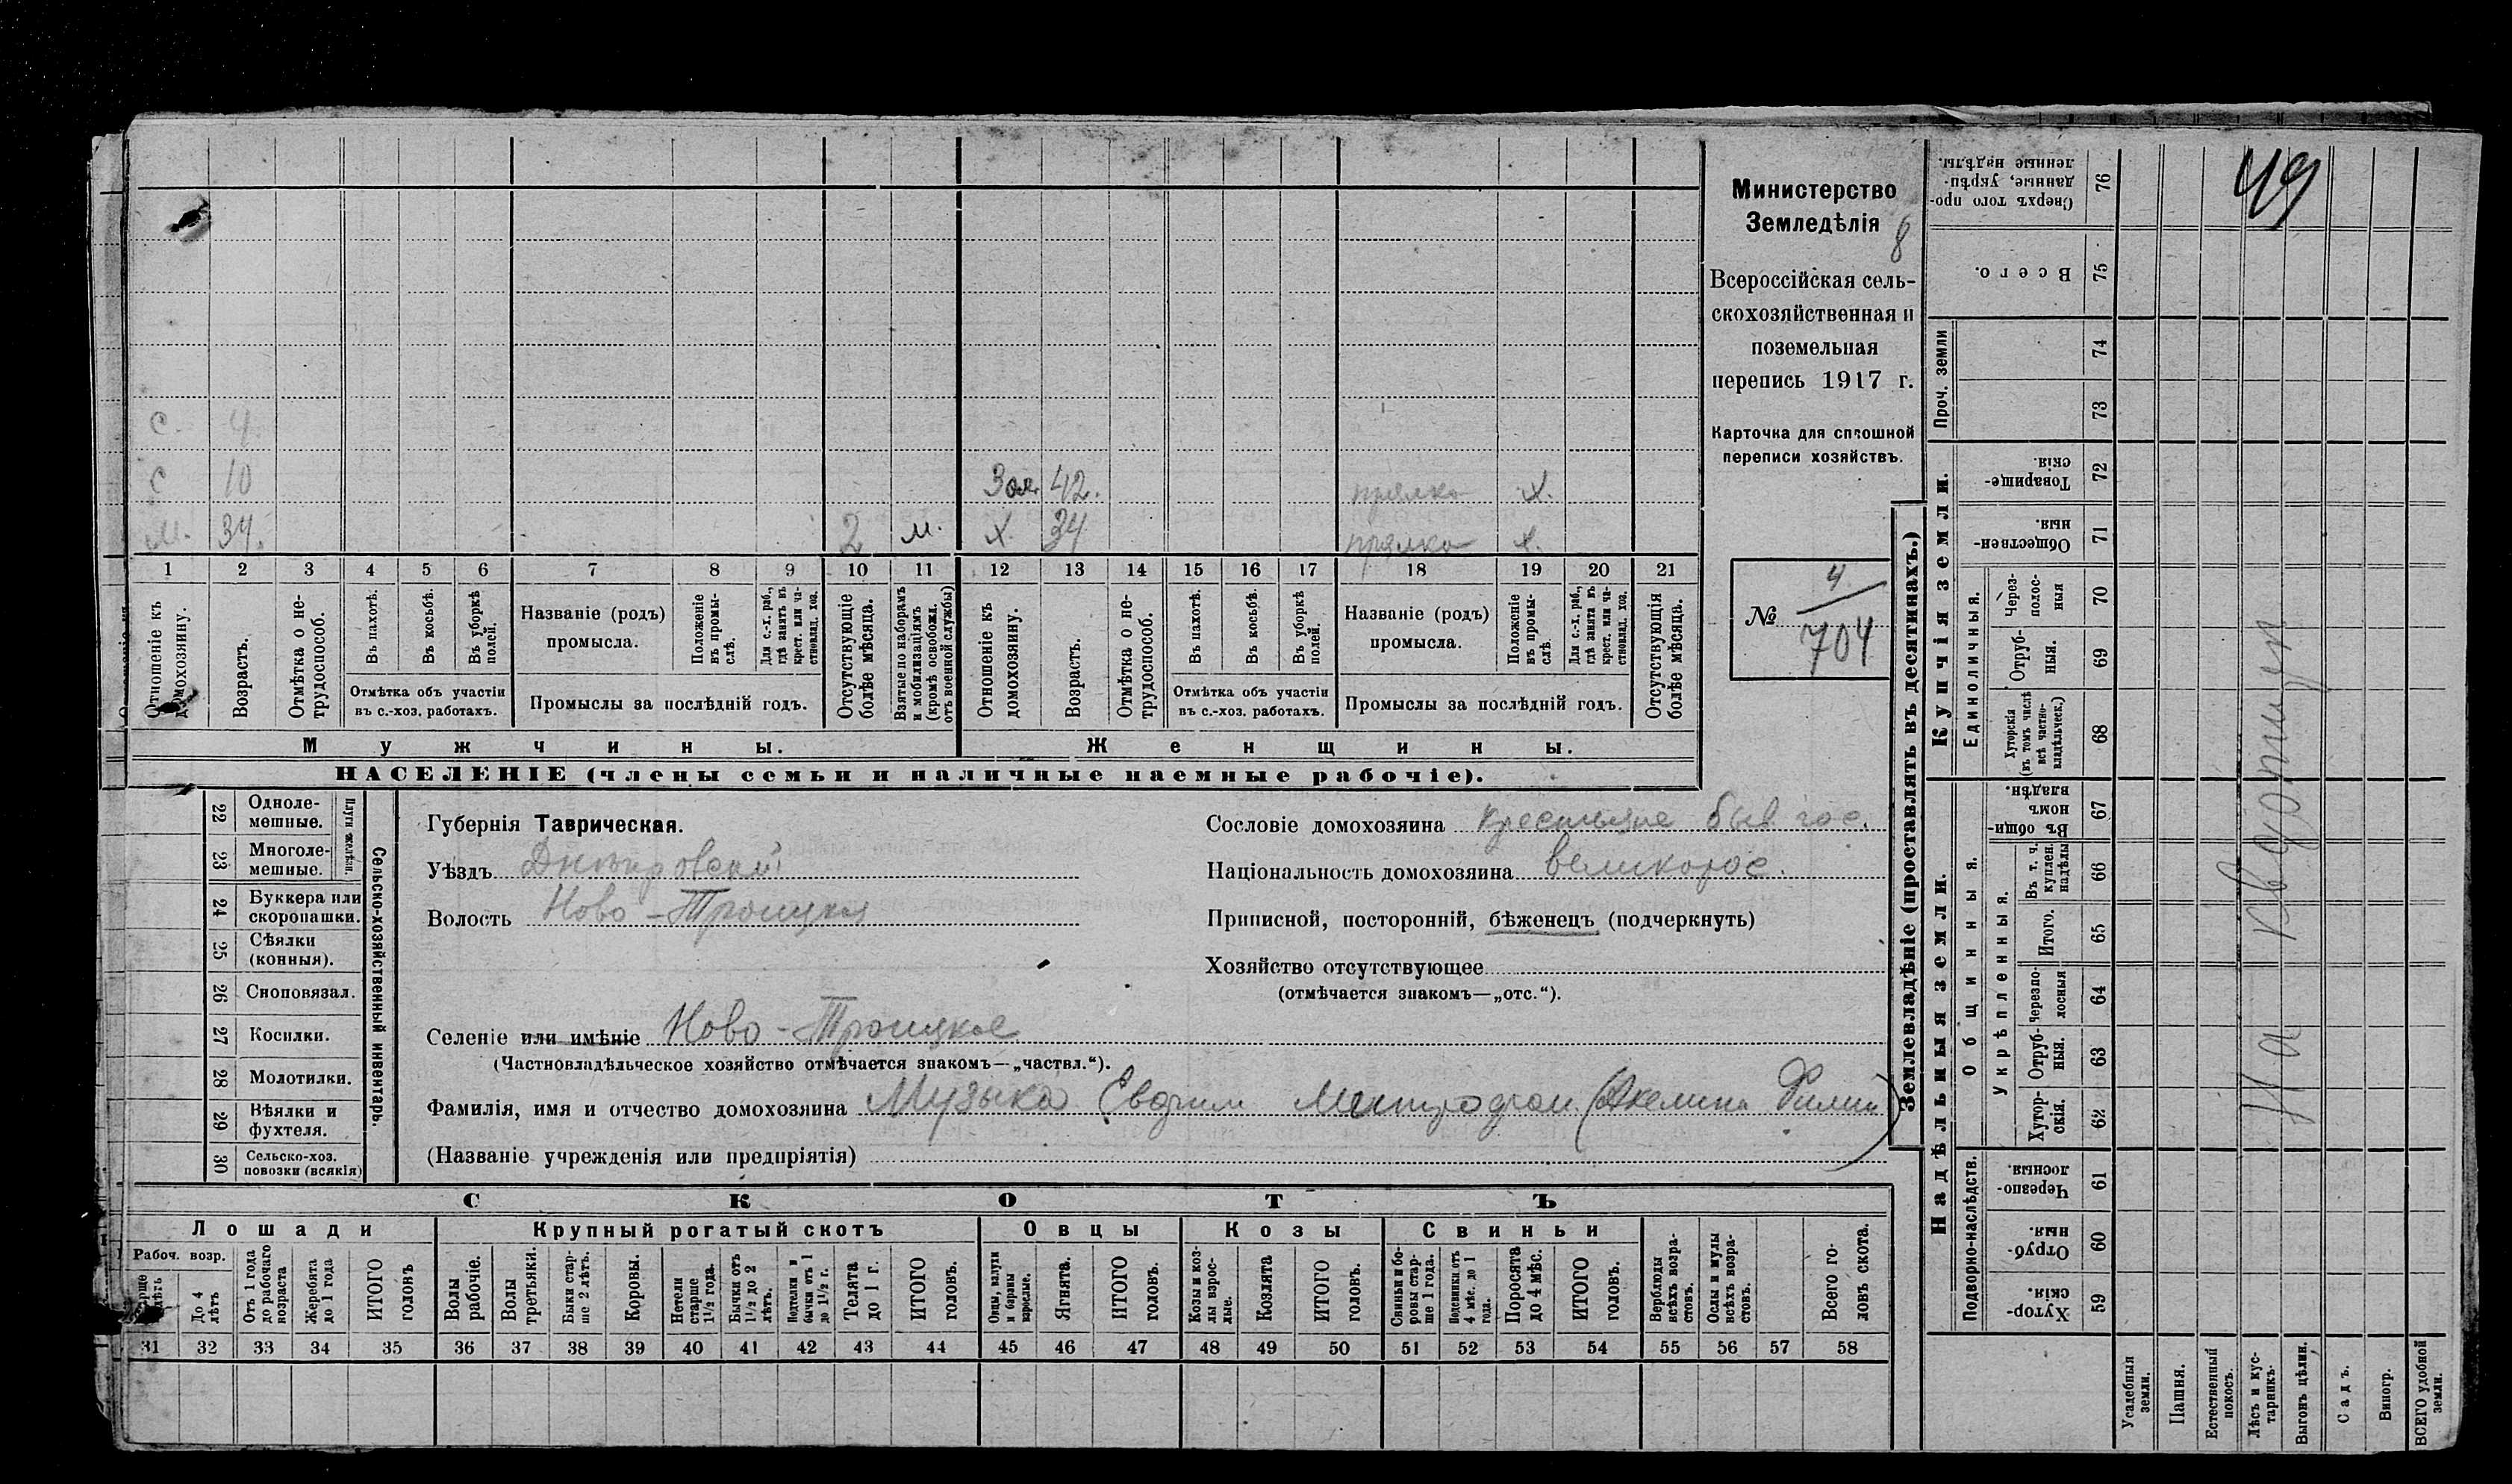 49
Министерство
Земледѣлія
8
Всероссійская сель-
скохозяйственная и
поземельная
перепись 1917 г.
Карточка для сплошной
переписи хозяйствъ.
№ 4/704
с. 4.
с 10
Зол. 42. прялка х.
м. 34. 2 м. х. 34 прялка х.
1 2 3 4 5 6 7 8 9 10 11 12 13 14 15 16 17 18 19 20 21
Отношеніе къ домохозяину.
Возрастъ.
Отмѣтка о не-трудоспособ.
Въ пахотѣ.
Въ косьбѣ.
Въ уборкѣ полей.
Отмѣтка объ участіи въ с.-хоз. работахъ.
Названіе (родъ) промысла.
Положеніе въ промы-слѣ.
Для с.-х. раб., гдѣ занятъ въ крест. или ча-стновлад. хоз.
Промыслы за послѣдній годъ.
Отсутствующіе болѣе мѣсяца.
Взятые по наборамъ и мобилизаціямъ (кромѣ освобожд. отъ военной службы)
Отношеніе къ домохозяину.
Возрастъ.
Отмѣтка о не-трудоспособ.
Въ пахотѣ.
Въ косьбѣ.
Въ уборкѣ полей.
Отмѣтка объ участіи въ с.-хоз. работахъ.
Названіе (родъ) промысла.
Положеніе въ промы-слѣ
Для с.-х. раб., гдѣ занятъ въ крест. или ча-стновлад. хоз.
Промыслы за послѣдній годъ.
Отсутствующія болѣе мѣсяца.
Мужчины. Женщины.
НАСЕЛЕНІЕ (члены семьи и наличные наемные рабочіе).
Сельско-хозяйственный инвентарь.
Плуги желѣзн.
22 Одноле-мешные.
23 Многоле-мешные.
24 Буккера или скоропашки.
25 Сѣялки (конныя).
26 Сноповязал.
27 Косилки.
28 Молотилки.
29 Вѣялки и фухтеля.
30 Сельско-хоз. повозки (всякія)
Губернія Таврическая.
Уѣздъ Днѣпровскій
Волость Ново-Троицкая
Сословіе домохозяина крестьяне быв гос.
Національность домохозяина великорос.
Приписной, посторонній, бѣженецъ (подчеркнуть)
Хозяйство отсутствующее
(отмѣчается знакомъ—„отс.“).
Селеніе или имѣніе Ново-Троицкое
(Частновладѣльческое хозяйство отмѣчается знакомъ—„частвл.“).
Фамилія, имя и отчество домохозяина Музыка Евдоким Митрофан. (Акелина Филип)
(Названіе учрежденія или предпріятія)
СКОТЪ
Лошади Крупный рогатый скотъ Овцы Козы Свиньи
Рабоч. возр.
До 4 лѣтъ
Отъ 1 года до рабочаго возраста
Жеребята до 1 года
ИТОГО головъ
Волы рабочіе.
Волы третьяки.
Быки стар-ше 2 лѣтъ.
Коровы.
Нетели старше 1½ года.
Бычки отъ 1½ до 2 лѣтъ.
Подтелки и бычки отъ 1 до 1½ г.
Телята до 1 г.
ИТОГО головъ.
Овцы, валухи и бараны взрослые.
Ягнята.
ИТОГО головъ.
Козы и коз-лы взрос-лые.
Козлята
ИТОГО головъ.
Свиньи и бо-ровы стар-ше 1 года.
Подсвинки отъ 4 мѣс. до 1 года.
Поросята до 4 мѣс.
ИТОГО головъ.
Верблюды всѣхъ возра-стовъ.
Ослы и мулы всѣхъ возра-стовъ.
Всего го-ловъ скота.
31 32 33 34 35 36 37 38 39 40 41 42 43 44 45 46 47 48 49 50 51 52 53 54 55 56 57 58
Землевладѣніе (проставлять въ десятинахъ.)
Купчія земли.
Проч. земли
Единоличныя.
Надѣльныя земли.
Общинныя.
Укрѣпленныя.
Подворно-наслѣдств.
Сверхъ того про-данные, укрѣп-ленные надѣлы. 76
Всего. 75
74
73
Товарище-скія. 72
Обществен-ныя. 71
Через-полос-ныя 70
Отруб-ныя. 69
Хуторскія (въ томъ числѣ всѣ частно-владѣльческ.) 68
Въ общи-номъ владѣн. 67
Въ т. ч. куплен. надѣлы 66
Итого. 65
Черезпо-лосныя 64
Отруб-ныя. 63
Хутор-скія. 62
Черезпо-лосныя. 61
Отруб-ныя. 60
Хутор-скія. 59
На квартире
Усадебныя земли.
Пашня.
Естественный покосъ.
Лѣсъ и кус-тарникъ.
Выгонъ цѣлин.
Садъ.
Виногр.
ВСЕГО удобной земли.